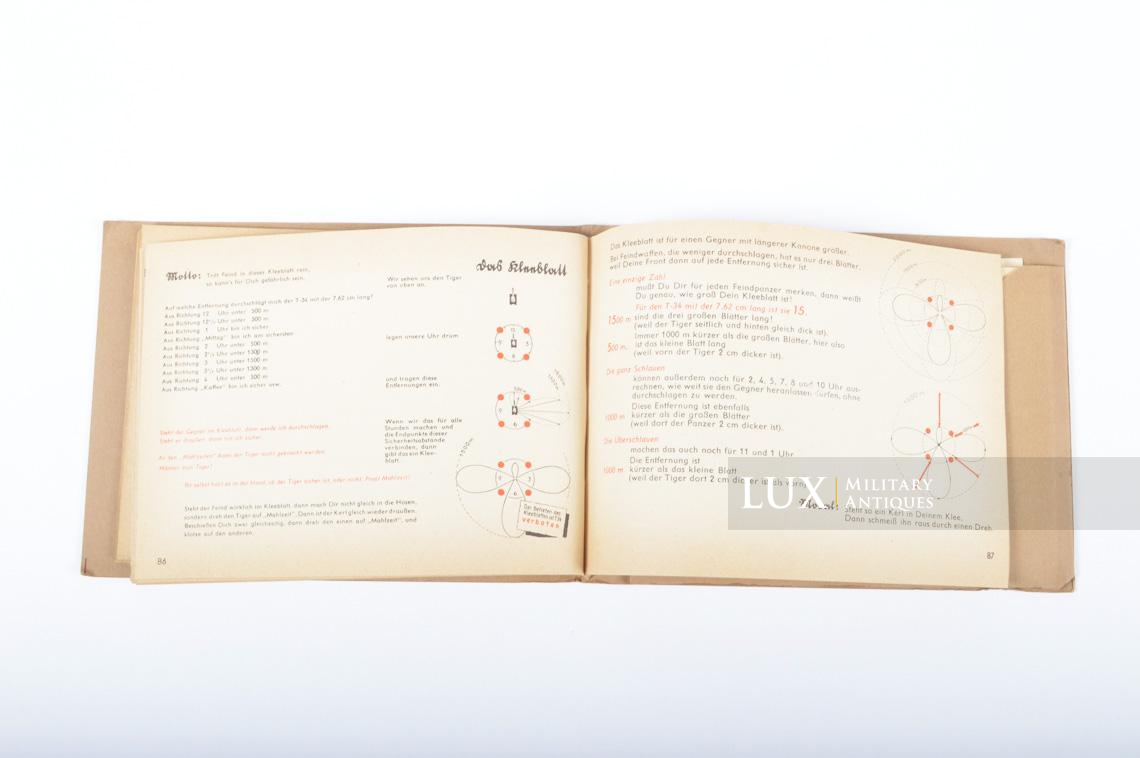 Motto: Tritt Feind in dieses Kleeblatt rein,
so kann's für Dich gefährlich sein.
Auf welche Entfernung durchschlägt mich der T-34 mit der 7,62 cm lang?
Aus Richtung 12 Uhr unter 500 m
Aus Richtung 12½ Uhr unter 500 m
Aus Richtung 1 Uhr bin ich sicher
Aus Richtung „Mittag“ bin ich am sichersten
Aus Richtung 2 Uhr unter 500 m
Aus Richtung 2½ Uhr unter 1300 m
Aus Richtung 3 Uhr unter 1500 m
Aus Richtung 3½ Uhr unter 1300 m
Aus Richtung 4 Uhr unter 500 m
Aus Richtung „Kaffee“ bin ich sicher usw.
Steht der Gegner im Kleeblatt, dann werde ich durchschlagen.
Steht er draußen, dann bin ich sicher.
An den „Mahlzeiten“ kann der Tiger nicht geknackt werden.
Männer vom Tiger!
Ihr selbst habt es in der Hand, ob der Tiger sicher ist, oder nicht. Prost Mahlzeit!
Steht der Feind wirklich im Kleeblatt, dann mach Dir nicht gleich in die Hosen,
sondern dreh den Tiger auf „Mahlzeit“. Dann ist der Kerl gleich wieder draußen.
Beschießen Dich zwei gleichzeitig, dann dreh den einen auf „Mahlzeit“, und
klotze auf den anderen.
86
Das Kleeblatt
Wir sehen uns den Tiger
von oben an,
legen unsere Uhr drum
und tragen diese
Entfernungen ein.
Wenn wir das für alle
Stunden machen und
die Endpunkte dieser
Sicherheitsabstände
verbinden, dann
gibt das ein Klee-
blatt.
12
9 3
6
500m
1500m
9
6
1500m
9 3
6
Das Betreten des
Kleeblattes ist T34
verboten
Das Kleeblatt ist für einen Gegner mit längerer Kanone größer.
Bei Feindwaffen, die weniger durchschlagen, hat es nur drei Blätter,
weil Deine Front dann auf jede Entfernung sicher ist.
Eine einzige Zahl
mußt Du Dir für jeden Feindpanzer merken, dann weißt
Du genau, wie groß Dein Kleeblatt ist!
Für den T-34 mit der 7,62 cm lang ist sie 15.
1500 m sind die drei großen Blätter lang!
(weil der Tiger seitlich und hinten gleich dick ist).
Immer 1000 m kürzer als die großen Blätter, hier also
500 m, ist das kleine Blatt lang
(weil vorn der Tiger 2 cm dicker ist).
Die ganz Schlauen
können außerdem noch für 2, 4, 5, 7, 8 und 10 Uhr aus-
rechnen, wie weit sie den Gegner heranlassen dürfen, ohne
durchschlagen zu werden.
Diese Entfernung ist ebenfalls
1000 m kürzer als die großen Blätter
(weil dort der Panzer 2 cm dicker ist).
Die Überschlauen
machen das auch noch für 11 und 1 Uhr
Die Entfernung ist
1000 m kürzer als das kleine Blatt
(weil der Tiger dort 2 cm dicker ist als vorn)
Moral: Steht so ein Kerl in Deinem Klee,
Dann schmeiß ihn raus durch einen Dreh.
87
LUX MILITARY
ANTIQUES